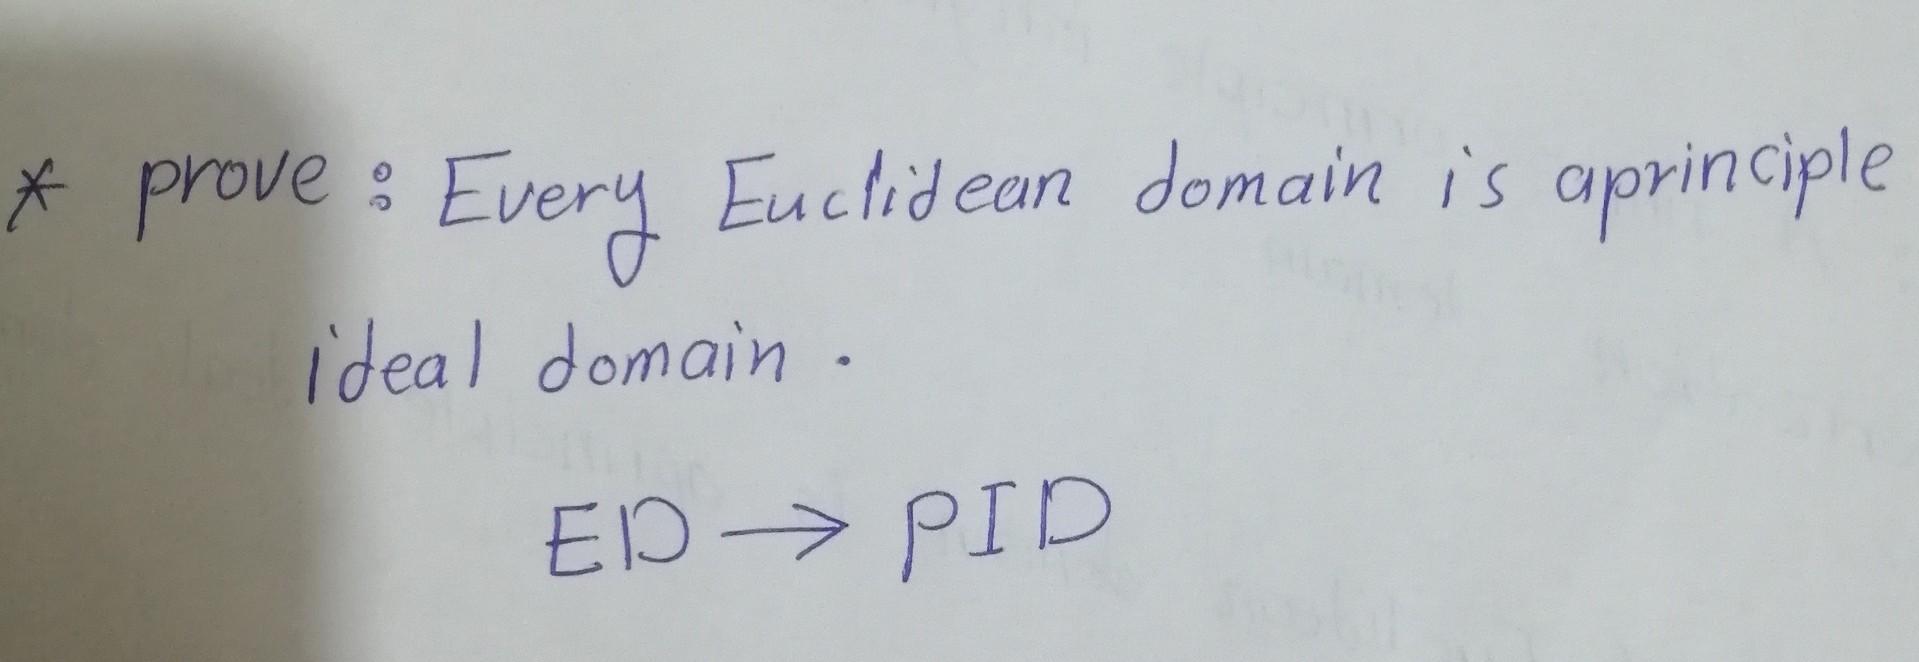 * prove : Every Euclidean domain is aprinciple
ideal domain .
ED → PID